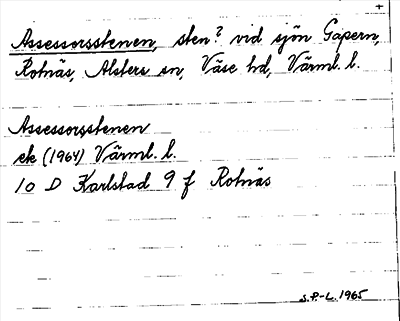 +
Assessorsstenen, sten? vid sjön Gapern,
Rotnäs, Alsters sn, Väse hd, Värml. l.
Assessorsstenen
ek (1964) Värml. l.
10 D Karlstad 9 f Rotnäs
S.P-L. 1965